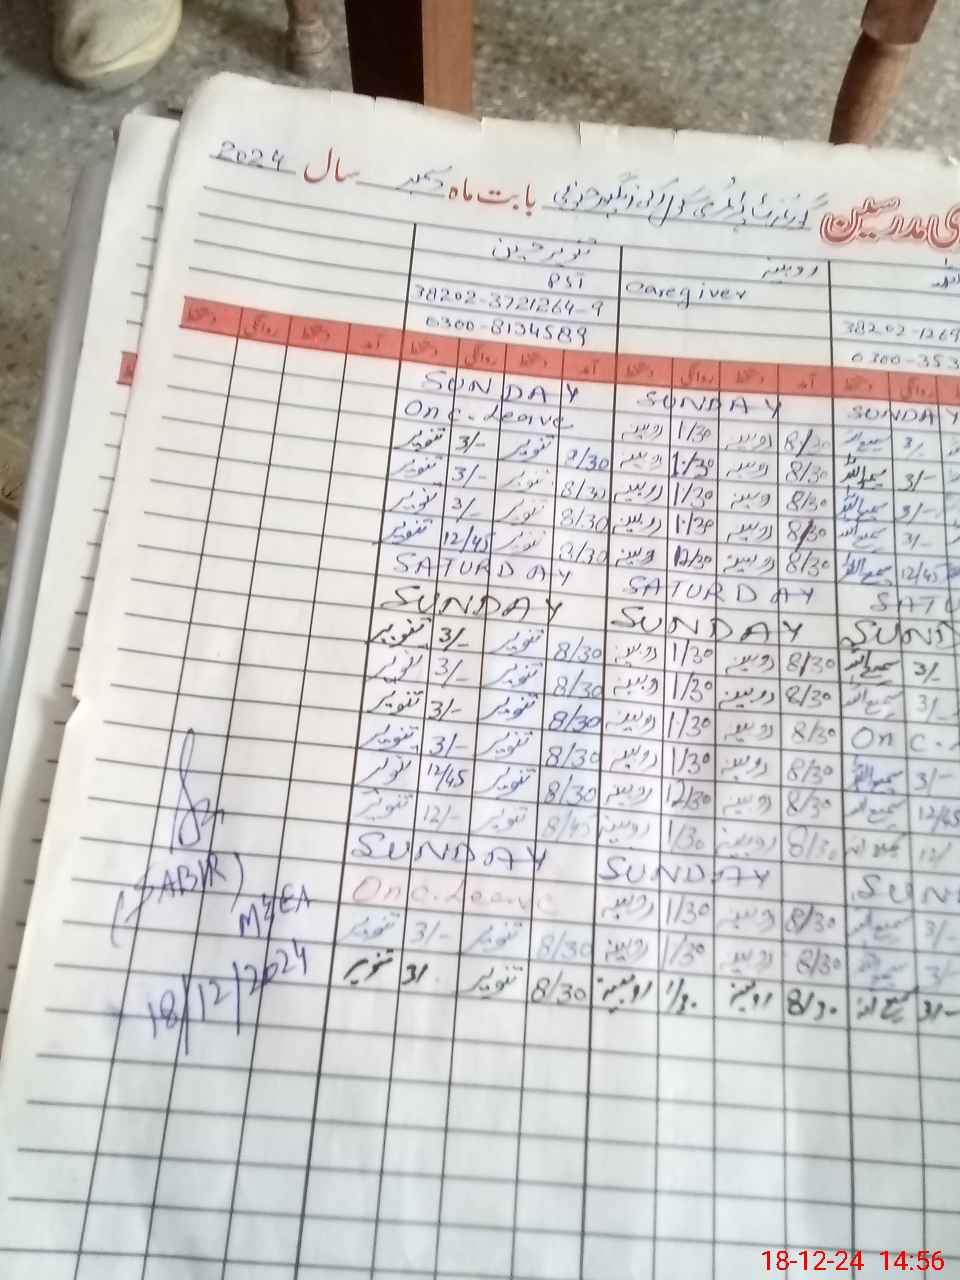 مدرسین گورنمنٹ بابت ماہ دسمبر سال 2024
تنویر روبینہ
PST Caregiver
38202-3721264-9 38202-1269
0300-8134589 0300-353
دستخط روانگی دستخط آمد دستخط روانگی دستخط آمد دستخط روانگی دستخط آمد دستخط روانگی
SUNDAY SUNDAY SUNDAY
On C. Leave روبینہ 1/30 روبینہ 8/30 سمیع اللہ 3/-
تنویر 3/- تنویر 8/30 روبینہ 1/30 روبینہ 8/30 سمیع اللہ 3/-
تنویر 3/- تنویر 8/30 روبینہ 1/30 روبینہ 8/30 سمیع اللہ 3/-
تنویر 3/- تنویر 8/30 روبینہ 1/30 روبینہ 8/30 سمیع اللہ 3/-
تنویر 12/45 تنویر 8/30 روبینہ 12/30 روبینہ 8/30 سمیع اللہ 12/45
SATURDAY SATURDAY SATU
SUNDAY SUNDAY SUND
تنویر 3/- تنویر 8/30 روبینہ 1/30 روبینہ 8/30 سمیع اللہ 3/-
تنویر 3/- تنویر 8/30 روبینہ 1/30 روبینہ 8/30 سمیع اللہ 3/-
تنویر 3/- تنویر 8/30 روبینہ 1/30 روبینہ 8/30 On C.
تنویر 3/- تنویر 8/30 روبینہ 1/30 روبینہ 8/30 سمیع اللہ 3/-
تنویر 12/45 تنویر 8/30 روبینہ 12/30 روبینہ 8/30 سمیع اللہ 12/45
تنویر 12/- تنویر 8/45 روبینہ 1/30 روبینہ 8/30 سمیع اللہ 12/
SUNDAY SUNDAY SUN
On C. Leave روبینہ 1/30 روبینہ 8/30 سمیع اللہ 3/-
تنویر 3/- تنویر 8/30 روبینہ 1/30 روبینہ 8/30 سمیع اللہ 3/-
تنویر 3/- تنویر 8/30 روبینہ 1/30 روبینہ 8/30 سمیع اللہ 3/-
(SABIR)
MEEA
18/12/2024
18-12-24 14:56